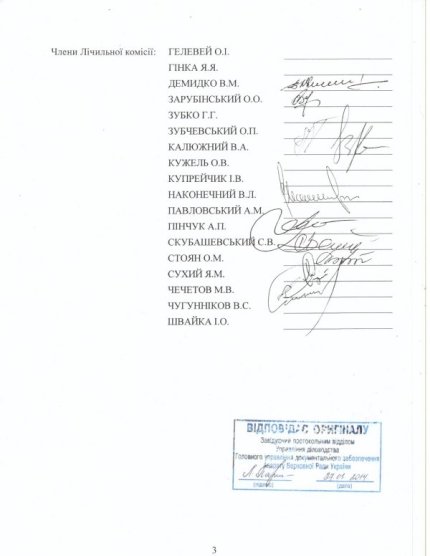 Члени Лічильної комісії: ГЕЛЕВЕЙ О.І.
ГІНКА Я.Я.
ДЕМИДКО В.М.
ЗАРУБІНСЬКИЙ О.О.
ЗУБКО Г.Г.
ЗУБЧЕВСЬКИЙ О.П.
КАЛЮЖНИЙ В.А.
КУЖЕЛЬ О.В.
КУПРЕЙЧИК І.В.
НАКОНЕЧНИЙ В.Л.
ПАВЛОВСЬКИЙ А.М.
ПІНЧУК А.П.
СКУБАШЕВСЬКИЙ С.В.
СТОЯН О.М.
СУХИЙ Я.М.
ЧЕЧЕТОВ М.В.
ЧУГУННІКОВ В.С.
ШВАЙКА І.О.
ВІДПОВІДАЄ ОРИГІНАЛУ
Завідуючий протокольним відділом
Управління діловодства
Головного управління документального забезпечення
Апарату Верховної Ради України
2014
(підпис) (дата)
3